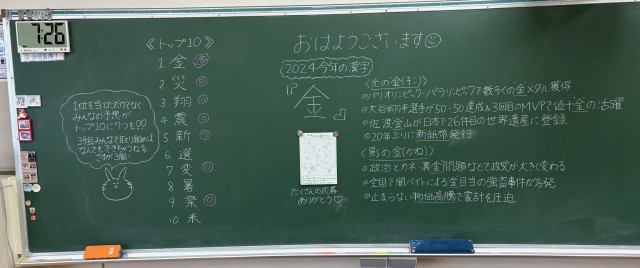 7:26
《トップ10》
1 金 ◎
2 災 ◎
3 翔 ◎
4 震 ◎
5 新 ◎
6 選
7 変 ◎
8 暑
9 楽 ◎
10 米
1位を当てただけでなく
みんなの予想が
トップ10に7つも!!
3年組みんなで取り組めば
なんでもできちゃうね
さすが3組!
おはようございます
2024今年の漢字
『金』
たくさんの応募
ありがとう♡
〈光の金(キン)〉
◎パリオリンピック・パラリンピックで数多くの金メダル獲得
◎大谷翔平選手が50-50達成&3回目のMVPで値千金の活躍
◎佐渡金山が日本で26件目の世界遺産に登録
◎20年ぶりに新紙幣発行
〈影の金(かね)〉
◎政治とカネ・裏金問題などで政界が大きく変わる
◎全国で闇バイトによる金目当の強盗事件が多発
◎止まらない物価高騰で家計を圧迫